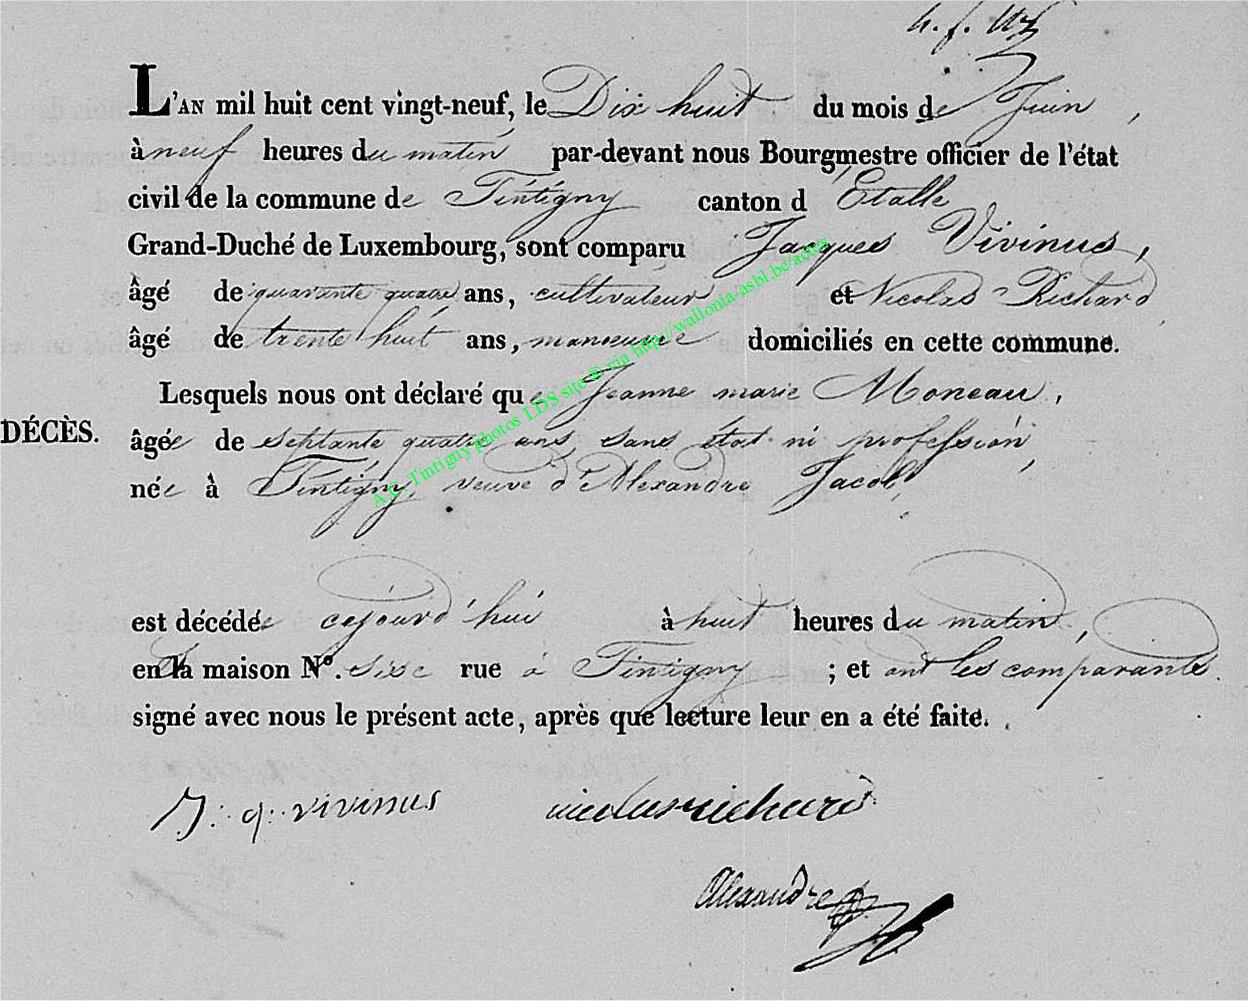 L'AN mil huit cent vingt-neuf, le Dix huit du mois de Juin,
à neuf heures du matin par-devant nous Bourgmestre officier de l'état
civil de la commune de Tintigny canton d Etalle
Grand-Duché de Luxembourg, sont comparu Jacques Vivinus,
âgé de quarante quatre ans, cultivateur et Nicolas Richard
âgé de trente huit ans, manoeuvre domiciliés en cette commune.
Lesquels nous ont déclaré que Jeanne marie Moneau,
DÉCÈS.
âgée de septante quatre ans sans état ni profession,
née à Tintigny, veuve d'Alexandre Jacob,
est décédée cejourd'hui à huit heures du matin,
en la maison N°. Sise rue à Tintigny ; et ont les comparants
signé avec nous le présent acte, après que lecture leur en a été faite.
J: q: vivinus nicolas richard
Alexandre
A.C. Tintigny photos LDS site @ via http://wallonia-asbl.be/actes